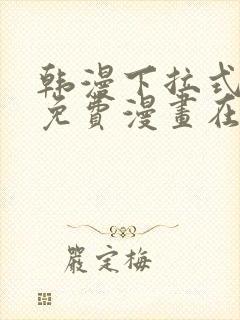 韩漫下拉式
免費漫畫在
嚴定梅